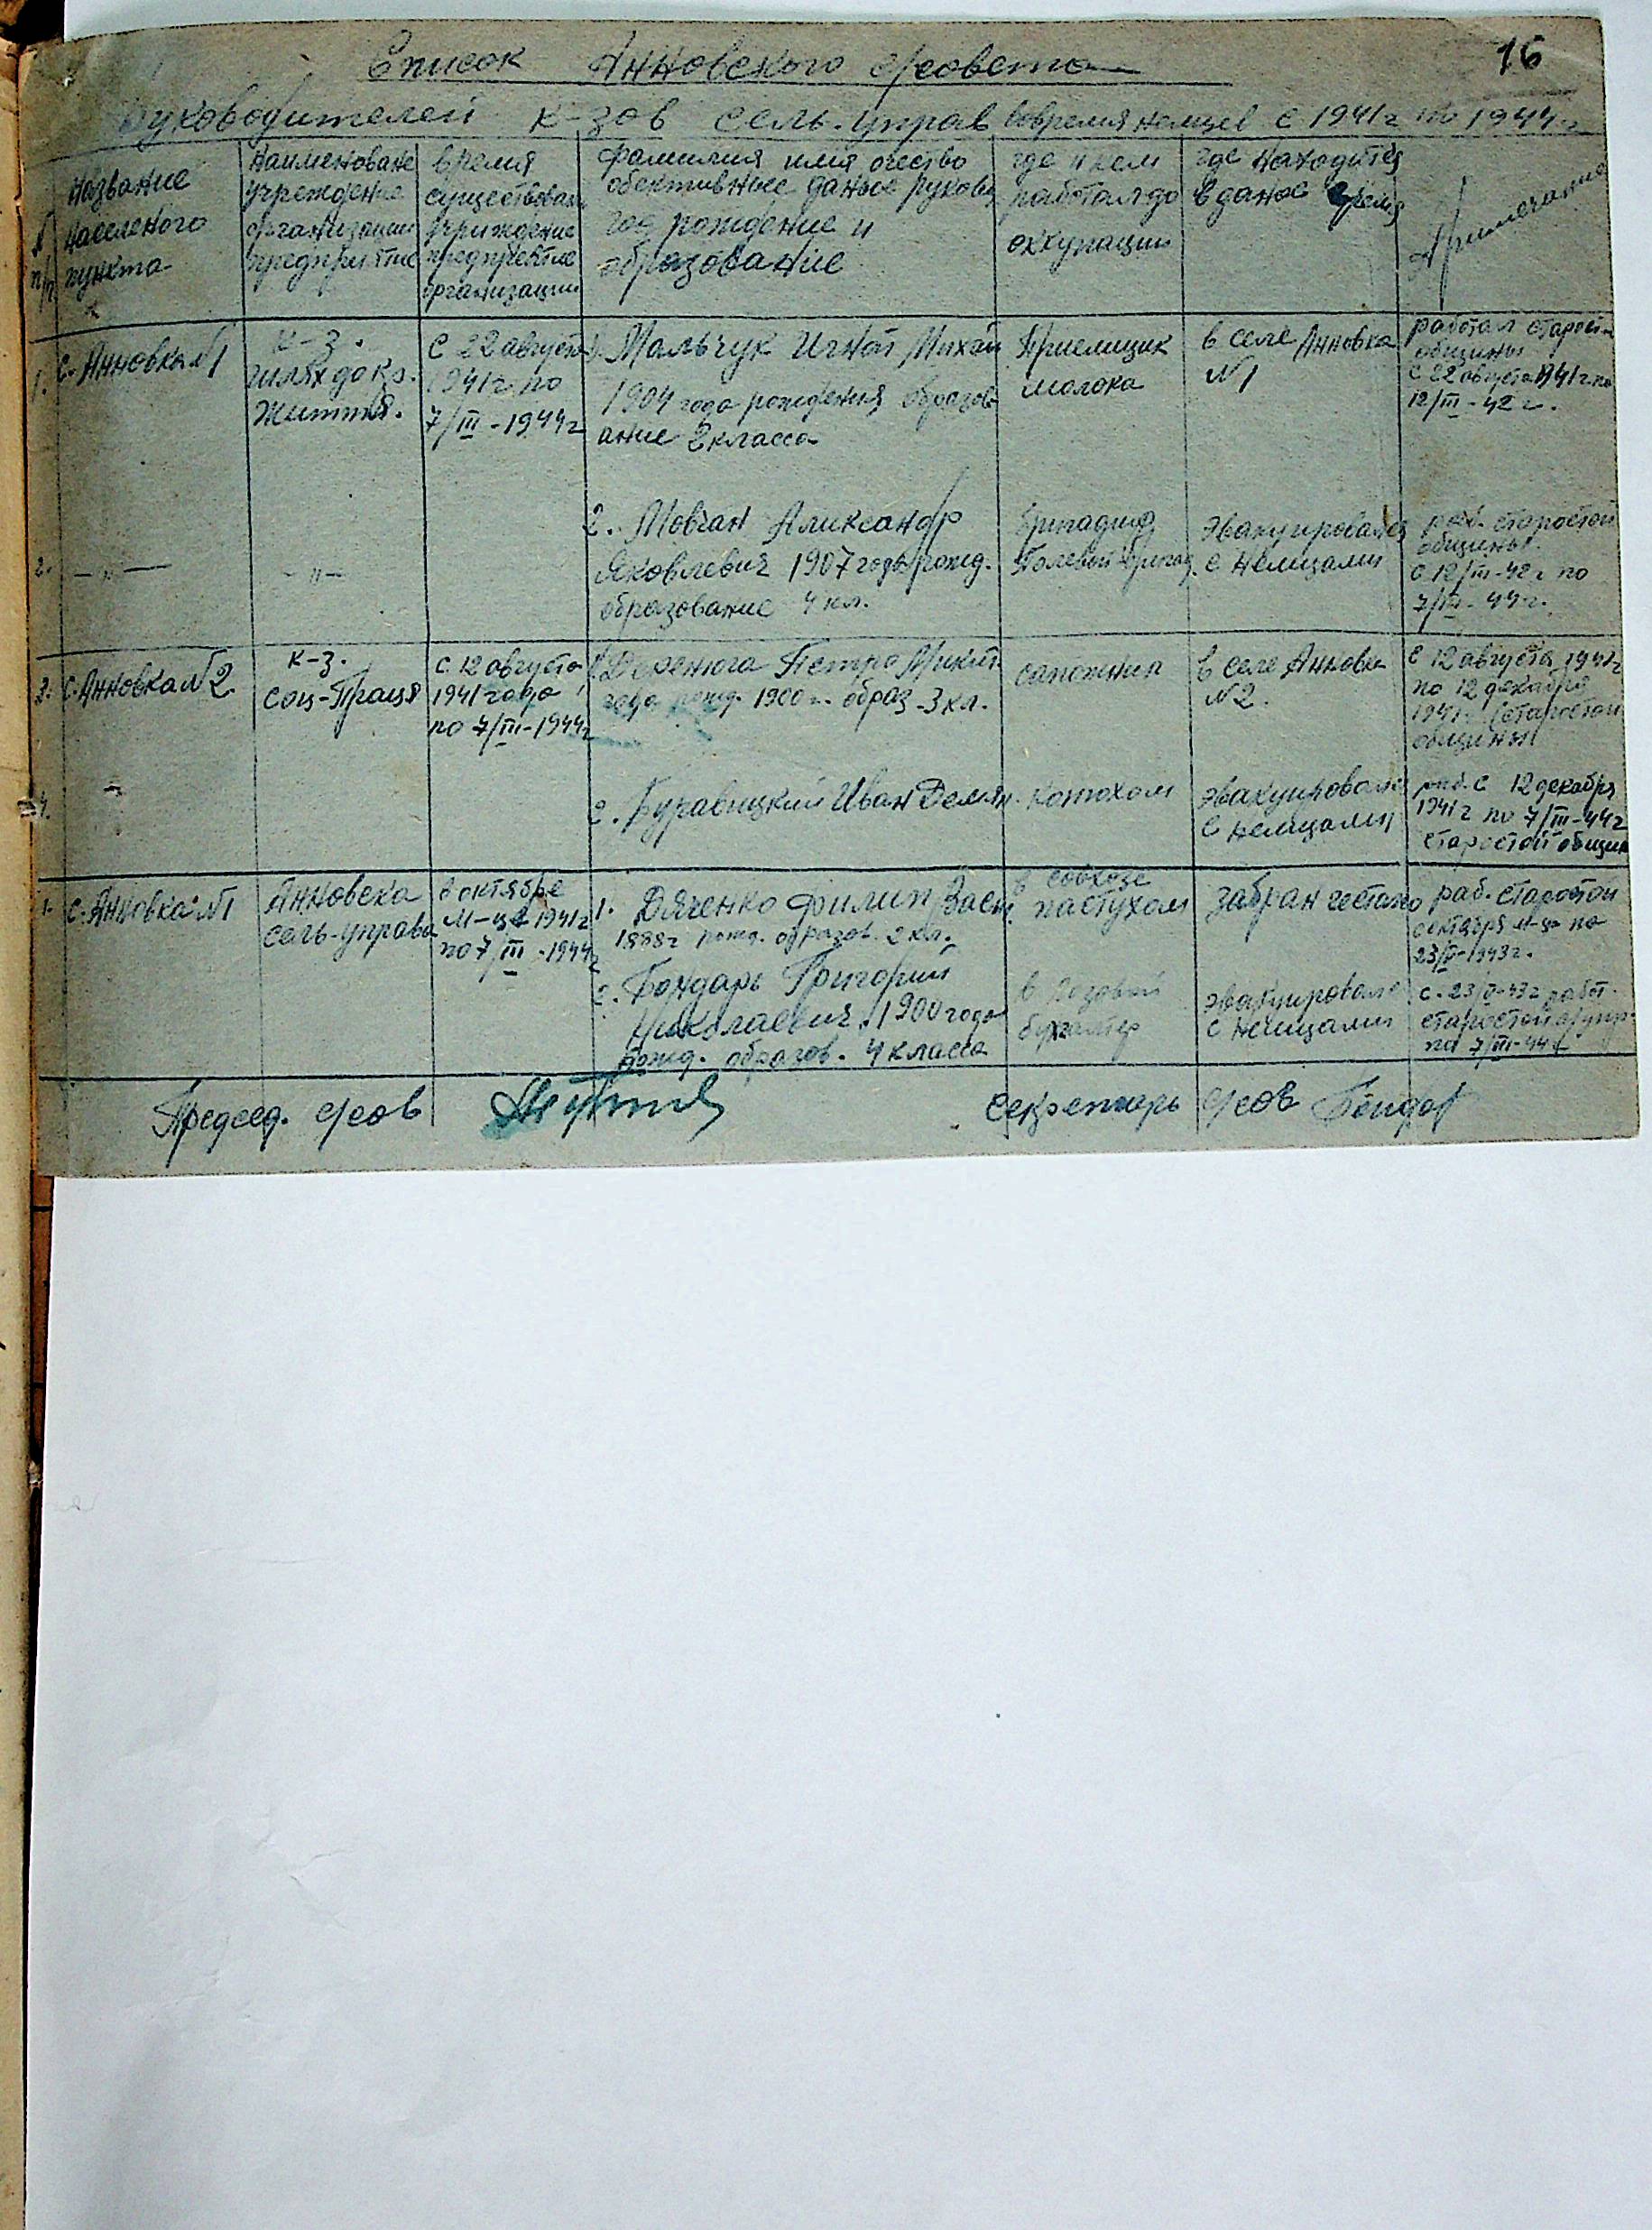 16
Список Анновского с/совета
руководителей к-зов сель. управ вовремя немцев с 1941г по 1944г
N п/п
название
населеного
пункта
наименоване
учреждение
организации
предприятие
время
существован
учриждение
предприетие
организации
фамилия имя очество
обективные даные руков
год рождение и
образование
где и кем
работал до
оккупации
где находится
в даное время
Примечание
1. с. Анновка N1
к-з.
шлях до кр.
життя.
с 22 августа
1941г. по
7/III-1944г
1. Мальчук Игнат Михай
1904 года рождения образов
ание 2 класса
Приемщик
молока
в селе Анновка
N1
работал старост
общины
с 22 августа 1941г. по
12/III-42г.
2. —„—
-„-
2. Мовчан Аликсандр
Яковлевич 1907 года рожд.
образование 4 кл.
Бригадир
Полевой бригад.
эвакуировался
с немцами
раб. старостой
общины.
с 12/III-42г по
7/III-44г.
3. с. Анновка N2.
к-з.
соц-Праця
с 12 августа
1941 года
по 7/III-1944г
1. Деренюга Петро Микит
года рожд. 1900г. образ. 3 кл.
сапожник
в селе Анновка
N2.
с 12 августа 1941г
по 12 декабря
1941г. старостой
общины
4. -„-
2. Буравицкий Иван Демян.
конюхом
эвакуировался
с немцами
раб. с 12 декабря
1941г по 7/III-44г
старостой общин
1. с. Анновка N1
Анновска
сель-управа
в октябре
м-це 1941г
по 7/III-1944г
1. Дяченко Филип Васи
1888г рожд. образов. 2 кл.
в совхозе
пастухом
забран гестапо
раб. старостой
октября м-ца по
23/V-1943г.
2. Бондарь Григорий
Николаевич 1900 года
рожд. образов. 4 класса
в
бухалтер
эвакуировался
с немцами
с 23/V-43г работ.
старостой с/упр.
по 7/III-44г.
Председ. с/сов
Секретарь с/сов Бондар